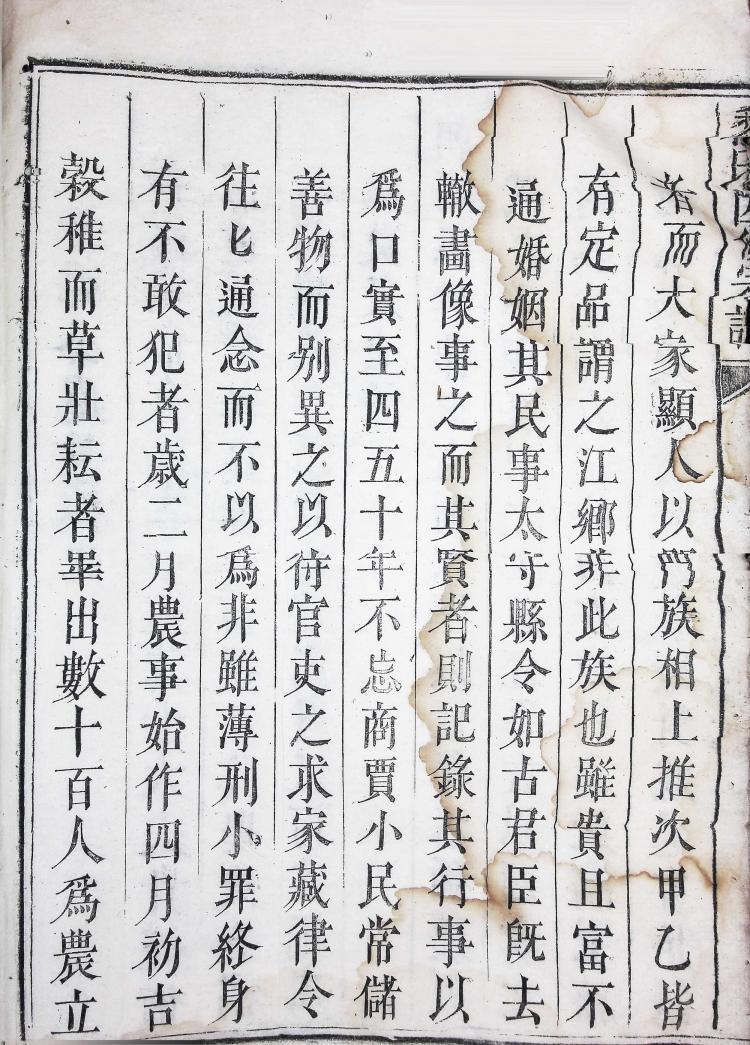 氏四修宗譜
者而大家顯人以門族相上推次甲乙皆
有定品謂之江鄉非此族也雖貴且富不
通婚姻其民事太守縣令如古君臣既去
轍畫像事之而其賢者則記錄其行事以
爲口實至四五十年不忘商賈小民常儲
善物而别異之以待官吏之求家藏律令
往匕通念而不以爲非雖薄刑小罪終身
有不敢犯者歲二月農事始作四月初吉
榖稚而草壯耘者畢出數十百人爲農立